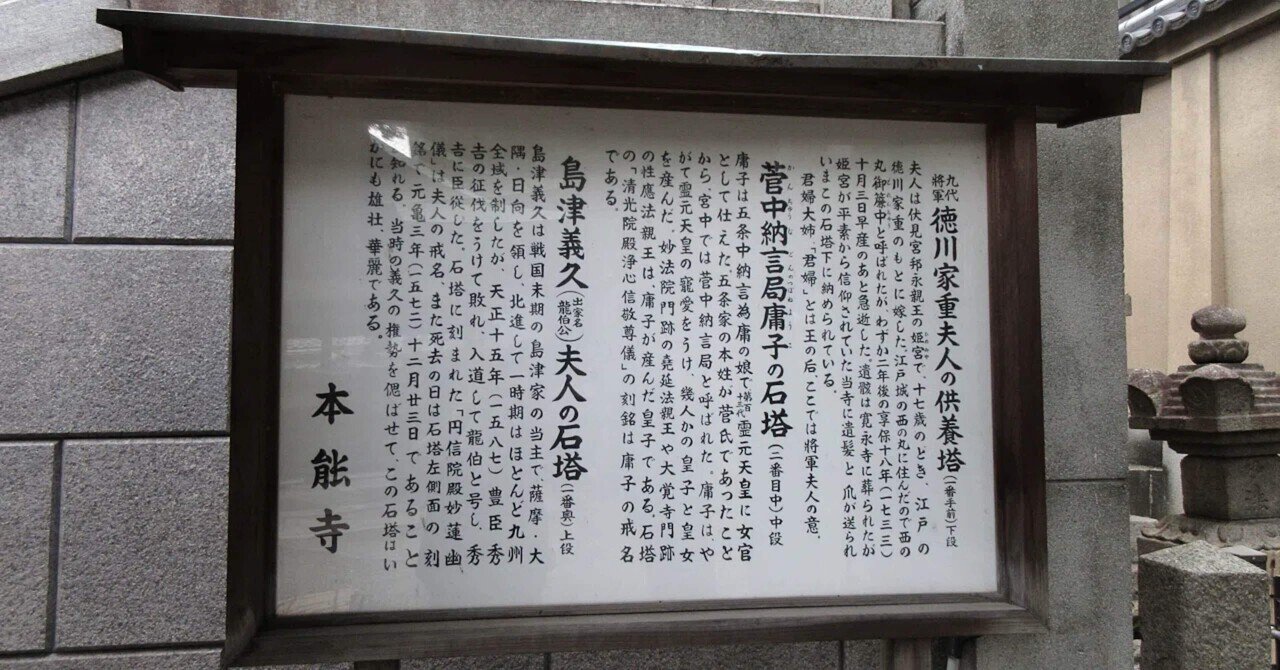 九代将軍徳川家重夫人の供養塔(一番手前)下段
夫人は伏見宮邦永親王の姫宮で、十七歳のとき、江戸の
徳川家重のもとに嫁した。江戸城の西の丸に住んだので西の
丸御簾中と呼ばれたが、わずか二年後の享保十八年(一七三三)
十月三日早産のあと急逝した。遺骸は寛永寺に葬られたが
姫宮が平素から信仰されていた当寺に遺髪と爪が送られ
いまこの石塔下に納められている。
君婦大姉、「君婦」とは王の后、ここでは将軍夫人の意、
菅中納言局庸子の石塔(二番目中)中段
庸子は五条中納言為庸の娘で第百十二代霊元天皇に女官
として仕えた。五条家の本姓が菅氏であったこと
から、宮中では菅中納言局と呼ばれた。庸子はや
がて霊元天皇の寵愛をうけ、幾人かの皇子と皇女
を産んだ。妙法院門跡の堯延法親王や大覚寺門跡
の性應法親王は、庸子が産んだ皇子である。石塔
の「清光院殿浄心信敬尊儀」の刻銘は庸子の戒名
である。
島津義久(出家名龍伯公)夫人の石塔(一番奥)上段
島津義久は戦国末期の島津家の当主で、薩摩・大
隅・日向を領し、北進して一時期はほとんど九州
全域を制したが、天正十五年(一五八七)豊臣秀
吉の征伐をうけて敗れ、入道して龍伯と号し、秀
吉に臣従した。石塔に刻まれた「円信院殿妙蓮幽
儀」は夫人の戒名、また死去の日は石塔左側面の刻
銘で元亀三年(一五七二)十二月廿三日であること
が知れる。当時の義久の権勢を偲ばせて、この石塔はい
かにも雄壮、華麗である。
本能寺